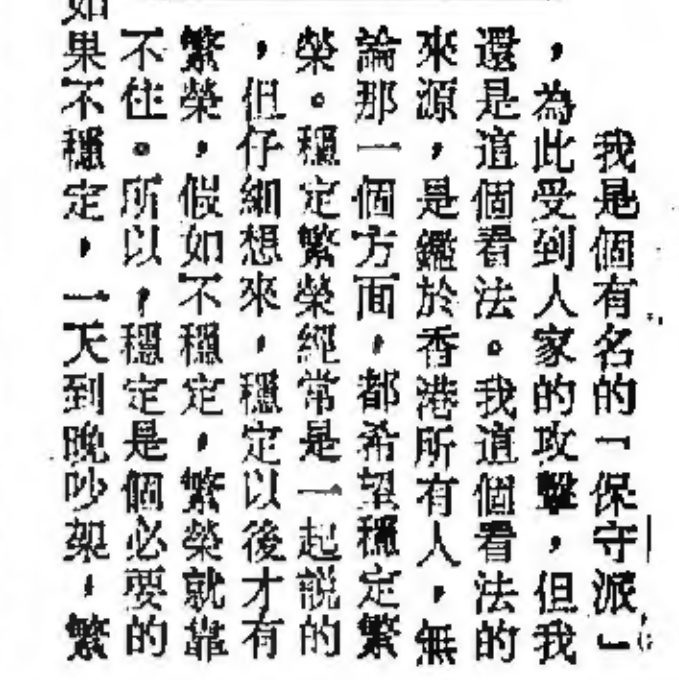 我是個有名的「保守派」
，為此受到人家的攻擊，但我
還是這個看法。我這個看法的
來源，是鑑於香港所有人，無
論那一個方面，都希望穩定繁
榮。穩定繁榮經常是一起說的
，但仔細想來，穩定以後才有
繁榮，假如不穩定，繁榮就靠
不住。所以，穩定是個必要的
如果不穩定，一天到晚吵架，繁